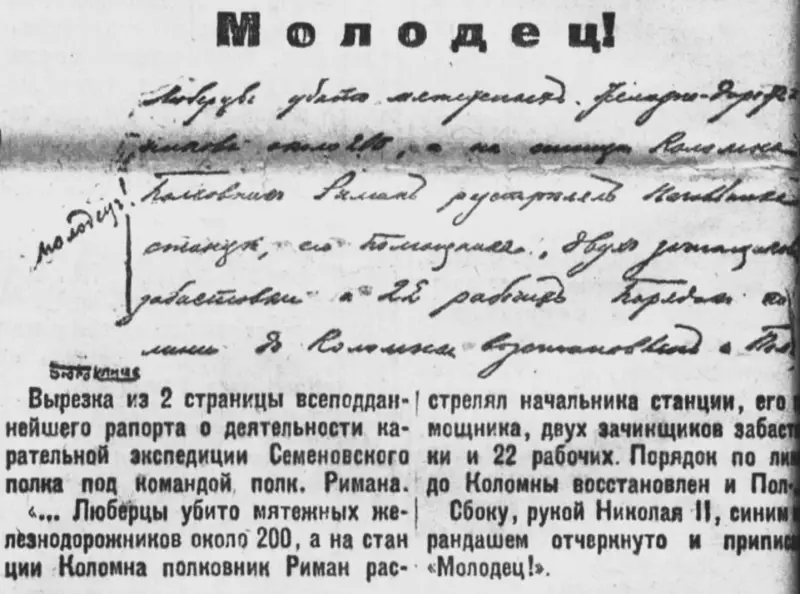 Молодец!
Люберцы убито мятежныхъ железно-дорож
никовъ около 200, а на станціи Коломна
Полковникъ Риманъ розстрелялъ Начальника
станціи, его помощника, двухъ зачинщиков
забастовки и 22 рабочихъ Порядок по
линіи до Коломны возстановленъ и Пол
молодец!
Вырезка из 2 страницы всеподдан-
нейшего рапорта о деятельности ка-
рательной экспедиции Семеновского
полка под командой полк. Римана.
«... Люберцы убито мятежных же-
лезнодорожников около 200, а на стан
ции Коломна полковник Риман рас-
стрелял начальника станции, его
мощника, двух зачинщиков забаст
ки и 22 рабочих. Порядок по лин
до Коломны восстановлен и Пол-
Сбоку, рукой Николая II, синим
рандашем отчеркнуто и припис
«Молодец!».